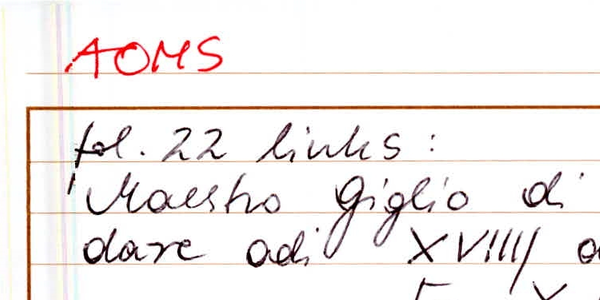 AOMS
fol. 22 links:
'Maestro Giglio di
dare adi XVIIII